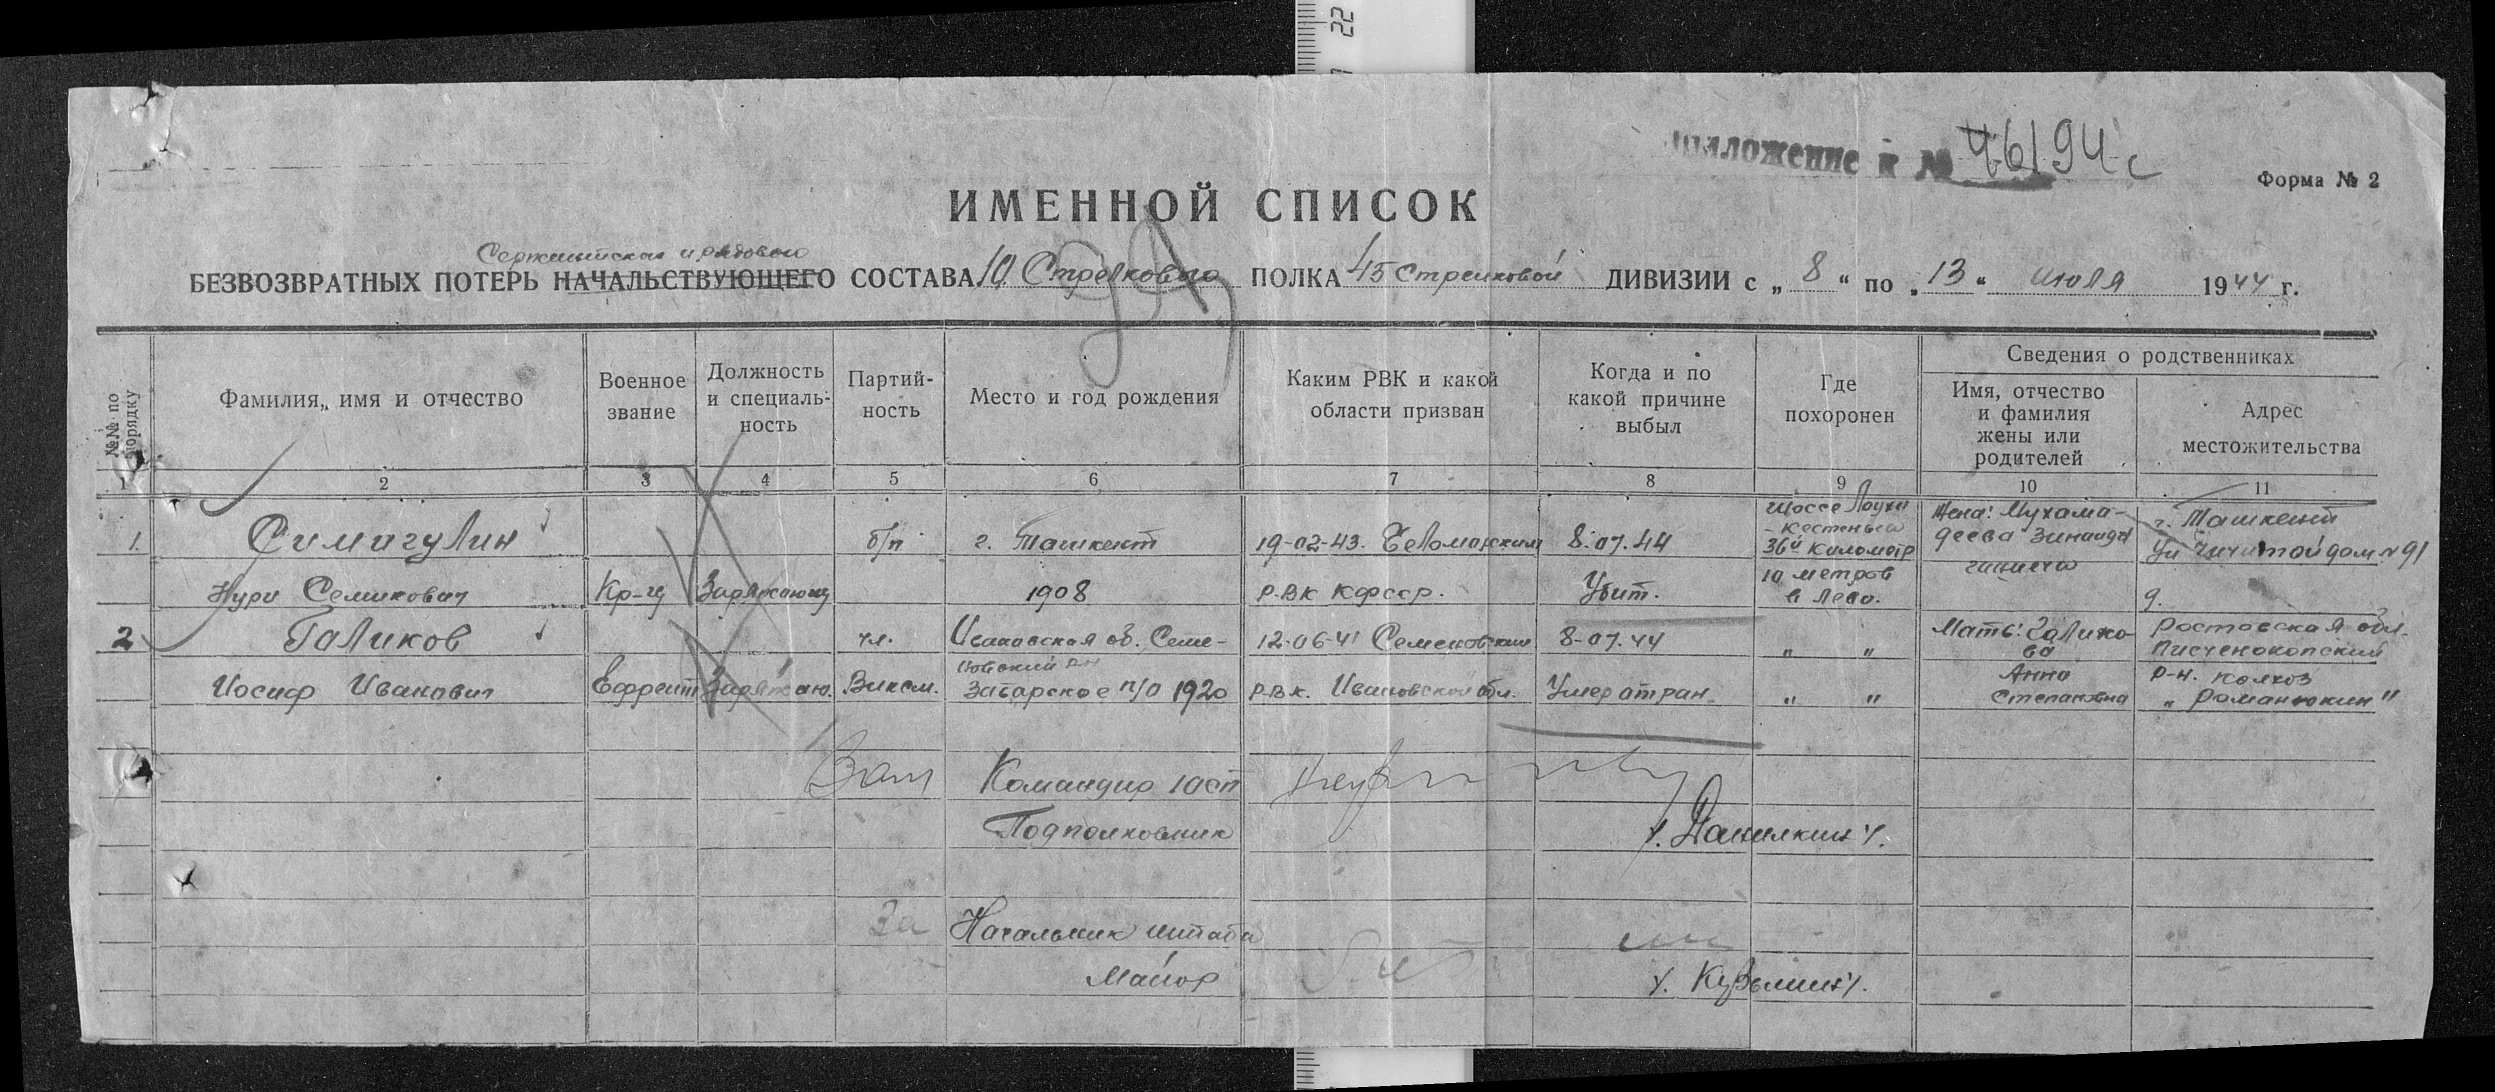 22
приложение к № 46194с
Форма № 2
ИМЕННОЙ СПИСОК
Сержантского и рядового
БЕЗВОЗВРАТНЫХ ПОТЕРЬ НАЧАЛЬСТВУЮЩЕГО СОСТАВА 10 Стрелкового ПОЛКА 45 Стрелковой ДИВИЗИИ с „ 8 “ по „ 13 “ июля 1944 г.
№№ по порядку
Фамилия, имя и отчество
Военное звание
Должность и специальность
Партий-ность
Место и год рождения
Каким РВК и какой области призван
Когда и по какой причине выбыл
Где похоронен
Сведения о родственниках
Имя, отчество и фамилия жены или родителей
Адрес местожительства
1 2 3 4 5 6 7 8 9 10 11
1. Симигулин б/п г. Ташкент 19-02-43. Беломорским 8.07.44 Шоссе Лоухи - Кестеньга 36й километр Жена: Мухама-деева Зинаида г. Ташкент ул дом №91
Нури Семикович Кр-ец Заряжающ 1908 РВК КФССР. Убит. 10 метров в лево. 9.
2 Галиков чл. Ивановская об. Семе- 12-06-41 Семеновским 8-07.44 „ „ Мать: Галико-ва Ростовская обл. Писченокопский
Иосиф Иванович Ефрейт Заряжаю. Влксм. новский рн Забарское п/о 1920 РВК. Ивановской обл. Умер от ран „ „ Анна Степановна р-н. колхоз „Романюкин"
Зам Командир 10сп
Подполковник /. Данилкин /.
За Начальник штаба
Майор /. Кузьмин /.